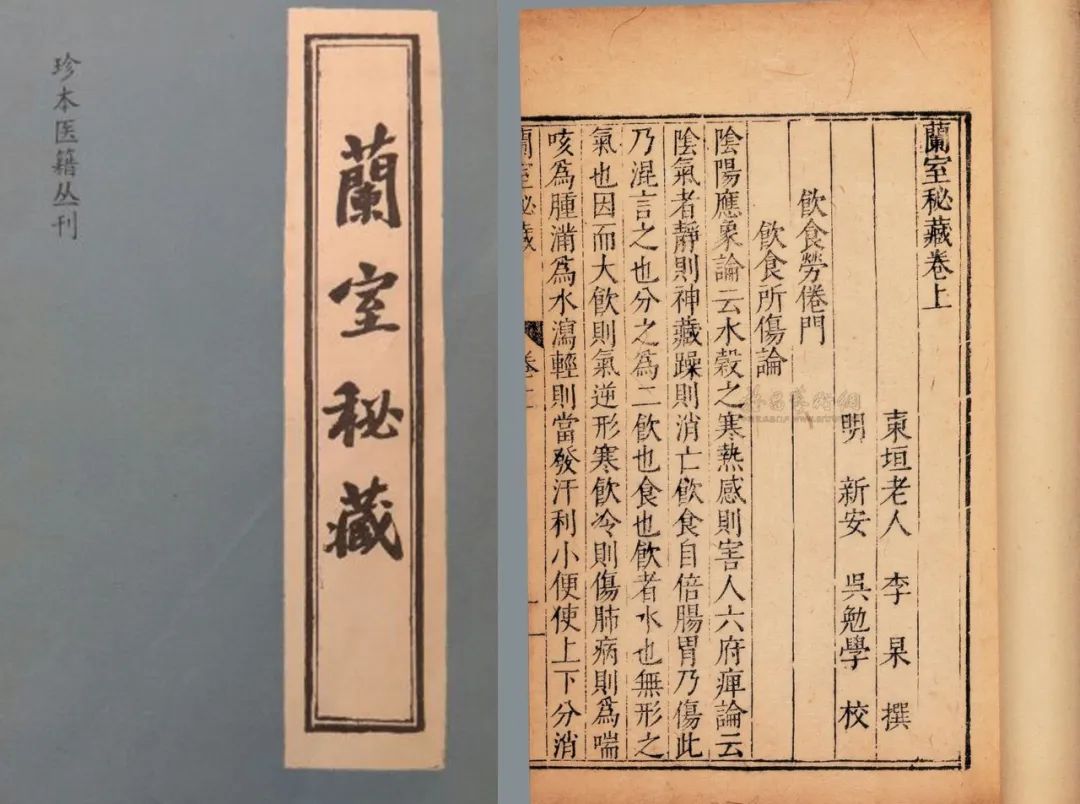 珍本医籍丛刊
蘭室秘藏
蘭室秘藏卷上
東垣老人 李 杲 撰
明 新安 吳勉學 校
飲食勞倦門
飲食所傷論
陰陽應象論云水穀之寒熱感則害人六府痺論云
陰氣者靜則神藏躁則消亡飲食自倍腸胃乃傷此
乃混言之也分之爲二飲也食也飲者水也無形之
氣也因而大飲則氣逆形寒飲冷則傷肺病則爲喘
咳爲腫滿爲水瀉輕則當發汗利小便使上下分消
蘭室秘藏